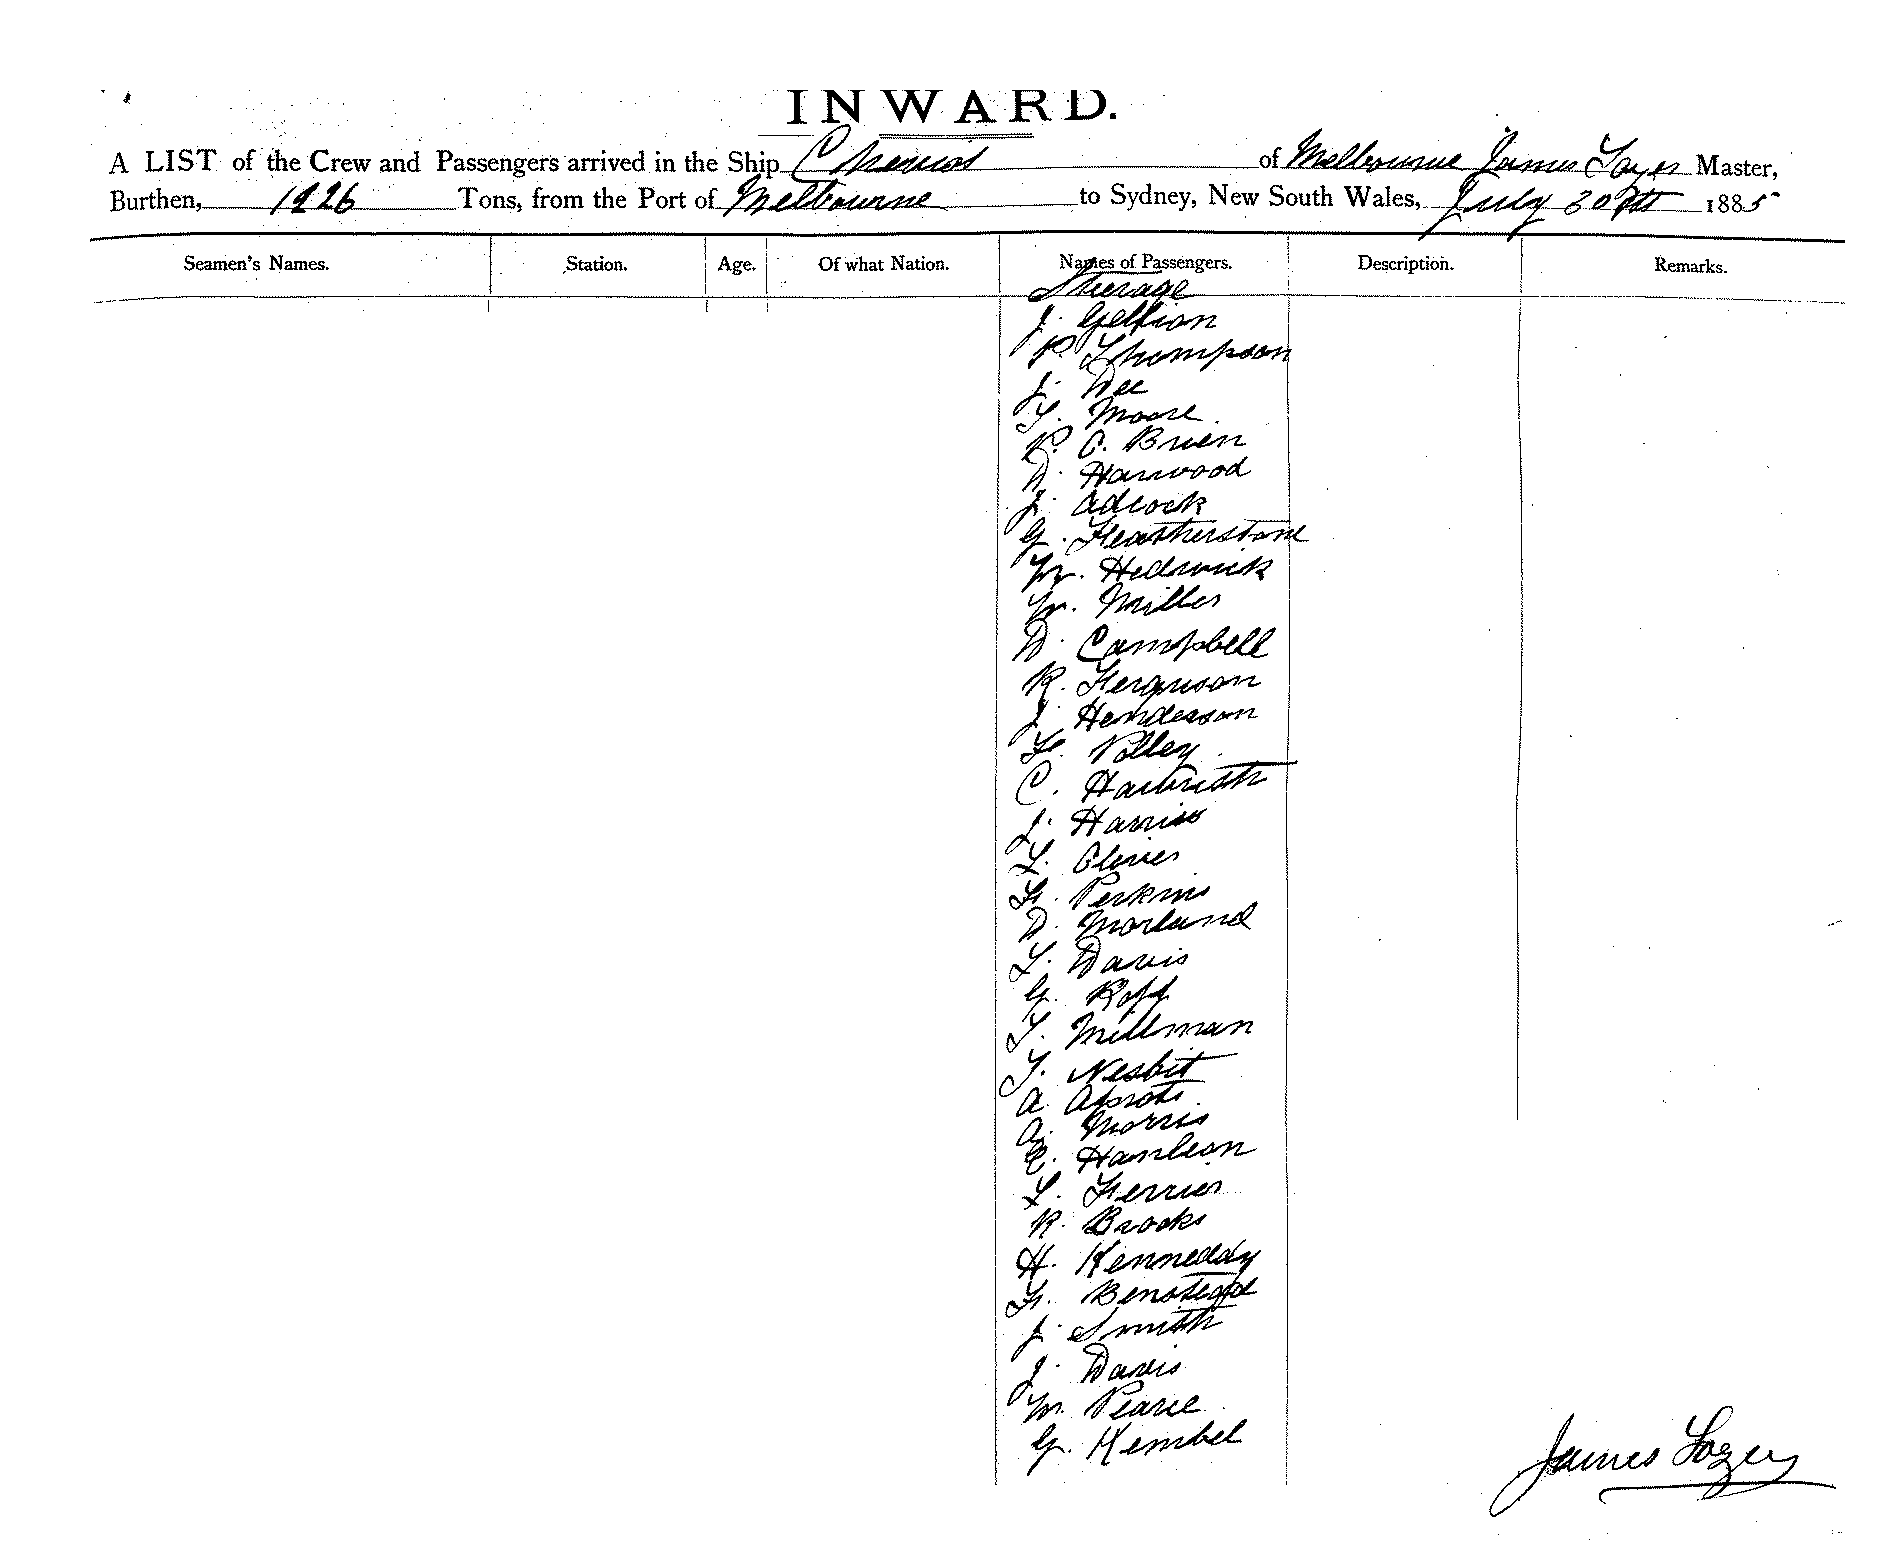 INWARD.
A LIST of the Crew and Passengers arrived in the Ship Cheviot of Melbourne James Master,
Burthen, 1226 Tons, from the Port of Melbourne to Sydney, New South Wales, July 30th 1885
Seamen's Names. Station. Age. Of what Nation. Names of Passengers. Description. Remarks.
Steerage
J. Gellion
P. Thompson
J. Dee
T. Moore
P. O. Brien
D. Harwood
J. Adcock
G. Featherstone
W. Hedwick
W. Miller
D. Campbell
R. Ferguson
J. Henderson
F. Polley
C.
J. Harris
T. Oliver
F. Perkins
D. Morland
T. Davis
G. Roff
T. Millman
T. Nesbit
A
A. Morris
E. Hanleon
T. Ferrier
R. Brooks
H. Kenneday
F.
J. Smith
J. Davis
W. Pearce
G. Kembel
James